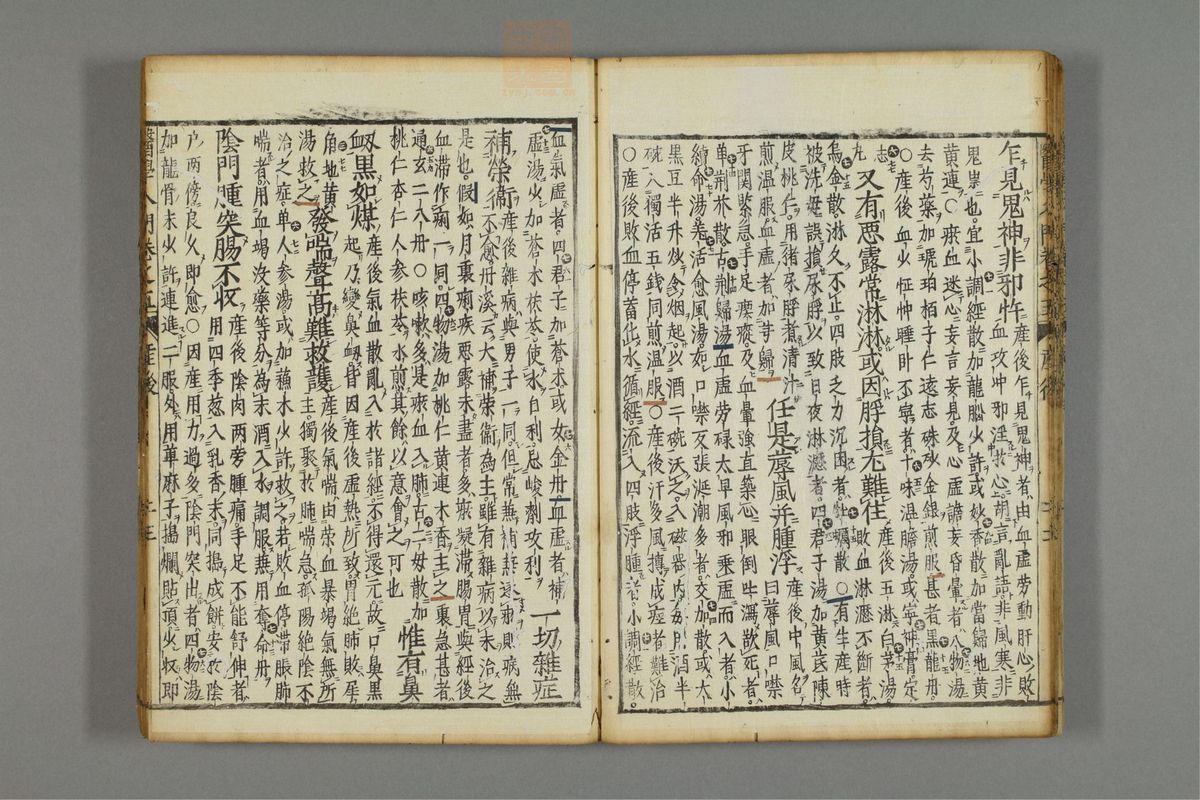 乍見鬼神非邪忤 産後乍見鬼神者由血虛勞動肝心敗血攻冲邪淫於心胡言亂語非風寒非
鬼祟也宜小調經散加龍腦少許或妙香散加當歸地黃
黃連○瘀血迷心妄言妄見及心虛譫妄昏暈者八物湯
去芍藥加琥珀栢子仁遠志硃砂金銀煎服甚者黑龍丹
○産後血少怔忡睡卧不寧者十味温膽湯或寧神膏定
志丸 又有惡露常淋淋或因脬損尤難徃 産後五淋白茅湯敗血淋瀝不断者
烏金散淋久不止四肢乏力沉困者牡蠣散○有生産時
被洗毋誤損尿脬以致日夜淋瀝者四君子湯加黄芪陳
皮桃仁用猪尿脬煮清汁
煎温服血虛者加芎歸 任是蓐風并腫浮 産後中風名曰蓐風口噤
牙関緊急手足瘈瘲及血暈強直築心眼倒吐瀉欲死者
単荆芥散古荆歸湯血虛勞碌太早風邪乗虛而入者小
續命湯羗活愈風湯如口噤反張涎潮多者交加散或大
黒豆半升炒令烟起以酒二碗沃之入磁器内每用酒半
碗入獨活五錢同煎温服○産後汗多風搏成痙者難治
○産後敗血停蓄化水循經流入四肢浮腫者小調經散
血氣虛者四君子加蒼术或女金丹血虛者補
虛湯少加蒼术茯苓使水自利忌峻劑攻利 一切雜症
補榮衛 産後雜病與男子一同但常兼補兼逐邪則病無
行不愈丹溪云大補榮衛為主雖有雜病以末治之
是也假如月裏痢疾惡露未盡者多瘀凝滯腸胃與經後
血滯作痢一同四物湯加桃仁黄連木香主之裏急甚者
通玄二八丹○咳嗽多是瘀血入肺古二毋散加
桃仁杏仁人参茯苓水煎其餘以意會之可也 惟有鼻
衂黒如煤 産後氣血散亂入於諸經不得還元故口鼻黒
起乃變鼻衂皆因産後虛熱所致胃絶肺敗犀
角地黄
湯救之 發喘聲髙難救護 産後氣喘由荣血暴竭氣無所
主獨聚於肺喘急孤陽絶陰不
治之症单人参湯或加蘇木少許救之若敗血停滯脹肺
喘者用血竭没藥等分為末酒入水調服兼用奪命丹
陰門腫突腸不收 産後陰肉两旁腫痛手足不能舒伸者
用四季葱入乳香末同搗成餅安於陰
户两傍良久即愈○因産用力過多陰門突出者四物湯
加龍骨末少許連進二服外用萆麻子搗爛貼頂少収即